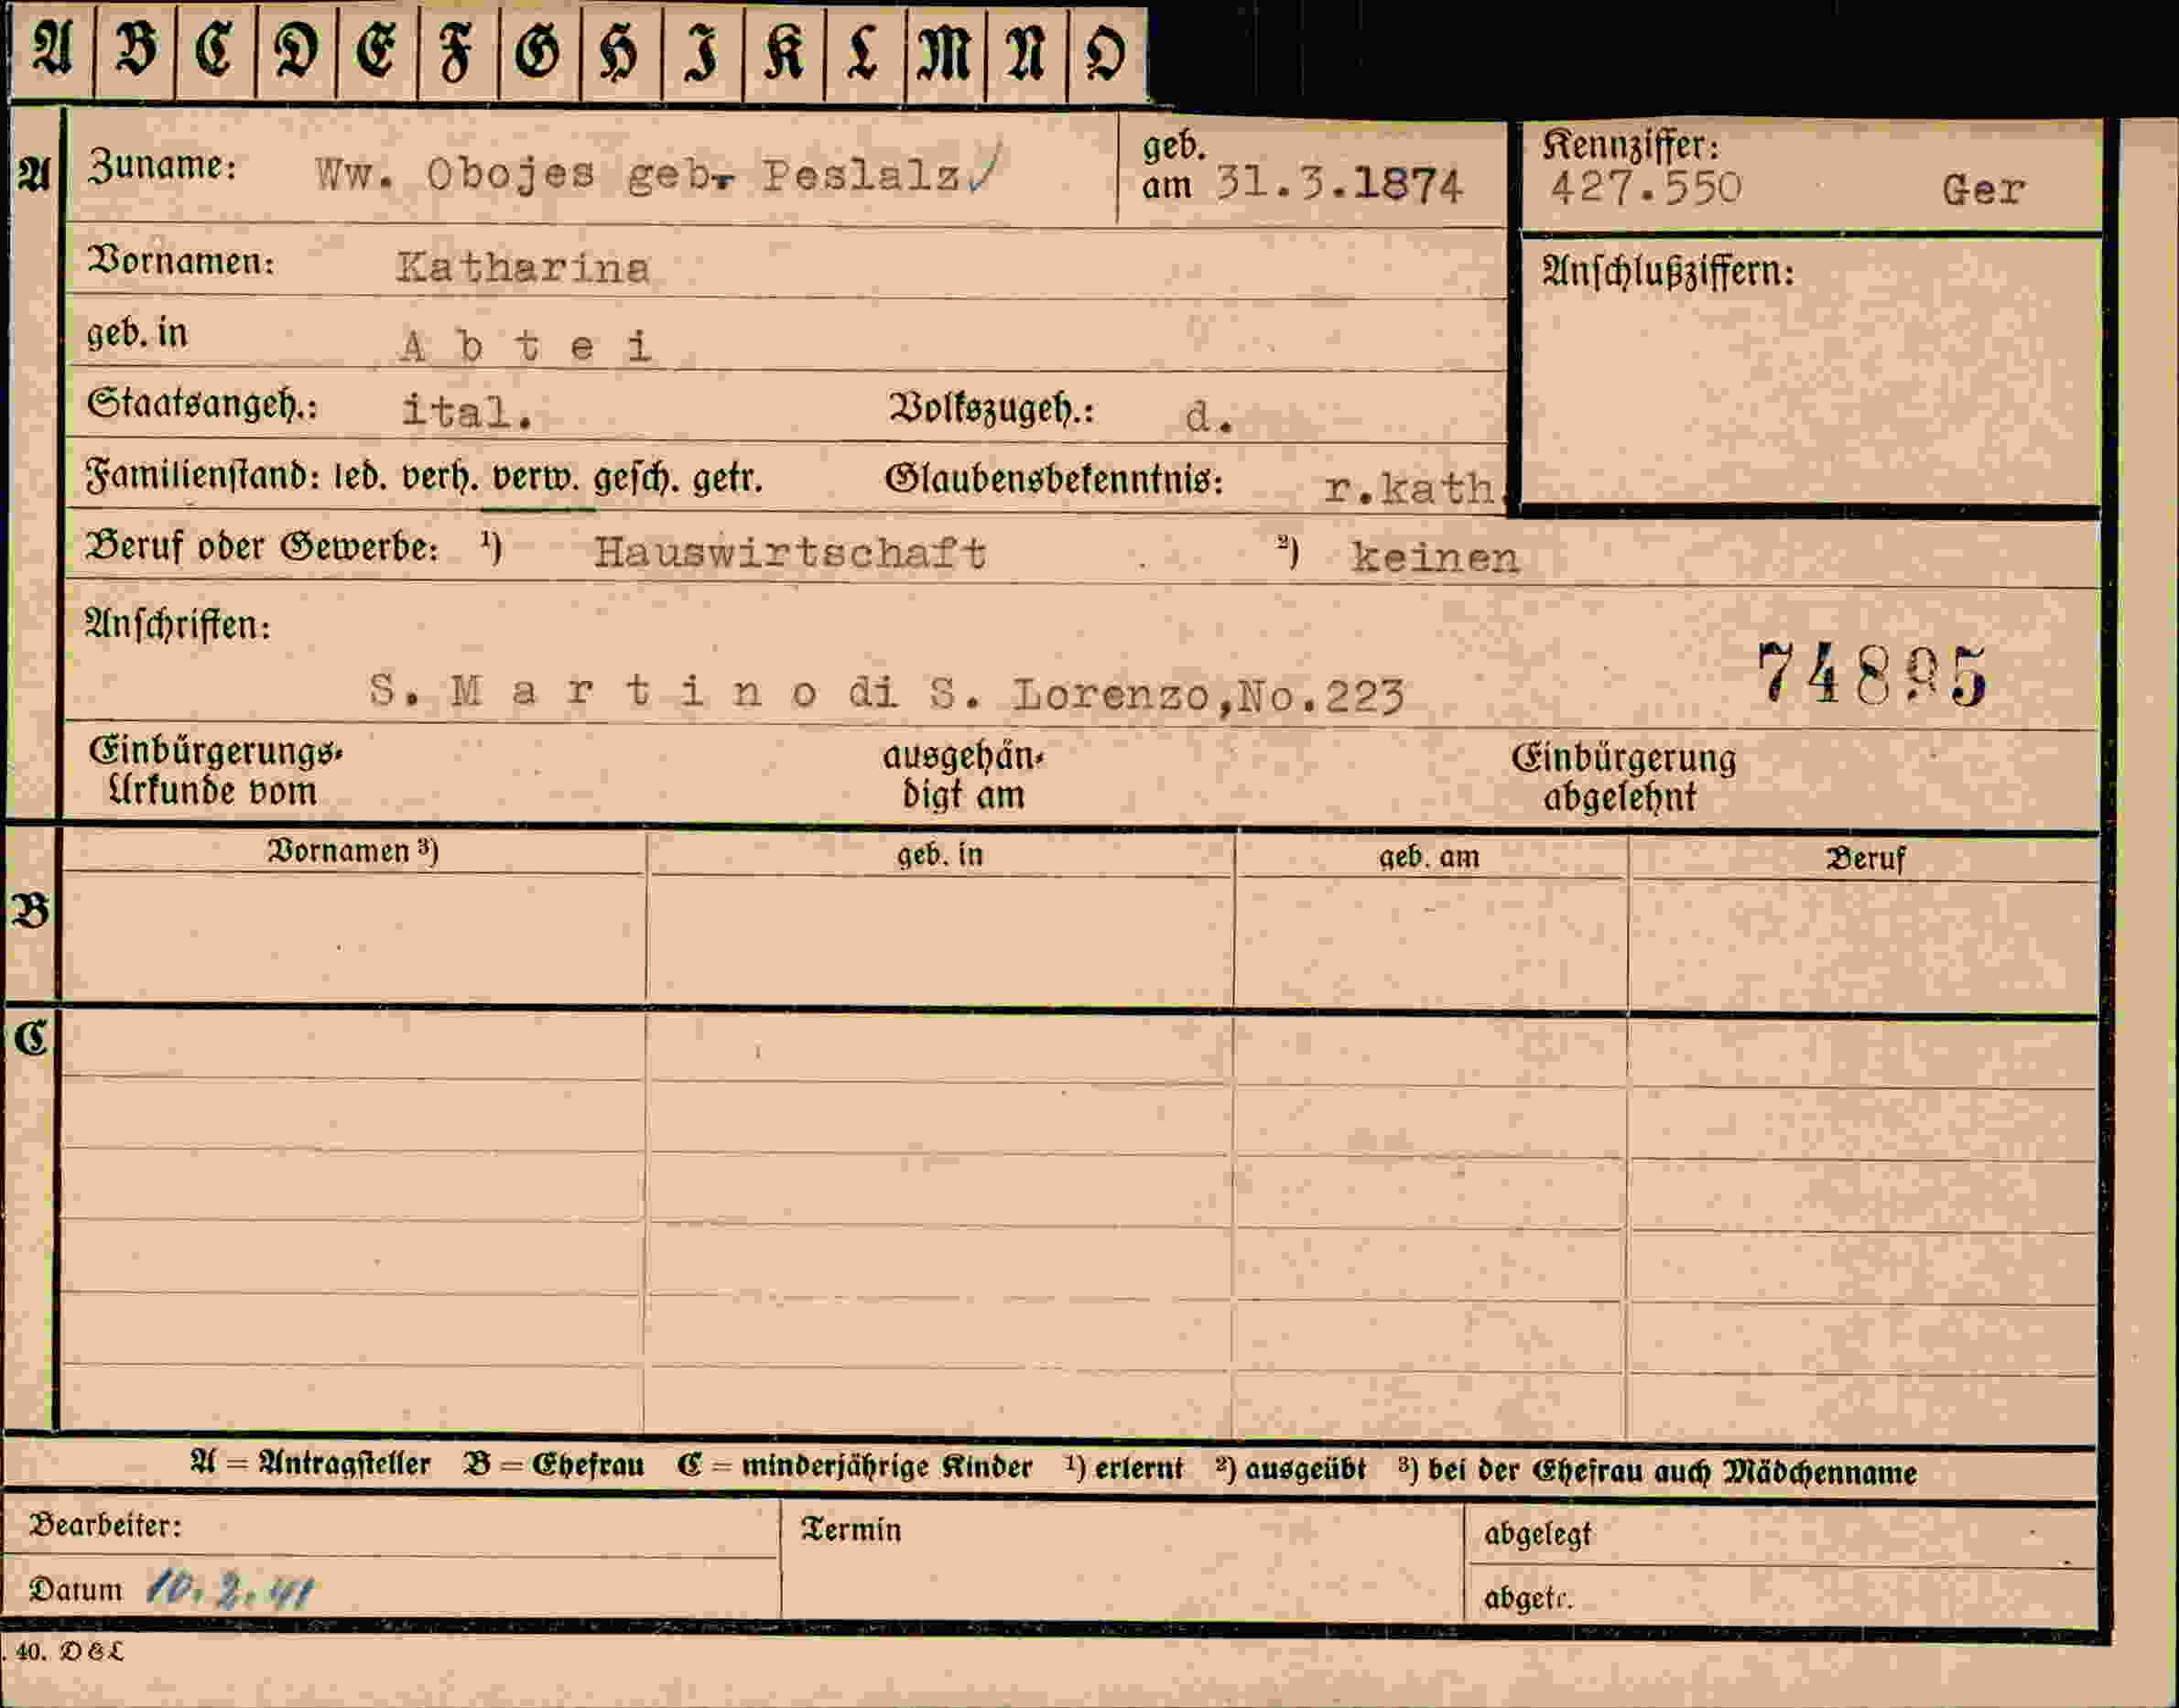 A B C D E F G H I K L M N O
A Zuname: Ww. Obojes geb. Peslalz/ geb. am 31.3.1874 Kennziffer: 427.550 Ger
Vornamen: Katharina Anschlußziffern:
geb. in A b t e i
Staatsangeh.: ital. Volkszugeh.: d.
Familienstand: led. verh. verw. gesch. getr. Glaubensbekenntnis: r.kath.
Beruf oder Gewerbe: ¹) Hauswirtschaft ²) keinen
Anschriften:
74895
S. M a r t i n o di S. Lorenzo,No.223
Einbürgerungs- ausgehän- Einbürgerung
Urkunde vom digt am abgelehnt
Vornamen ³) geb. in geb. am Beruf
B
C
A = Antragsteller B = Ehefrau C = minderjährige Kinder ¹) erlernt ²) ausgeübt ³) bei der Ehefrau auch Mädchenname
Bearbeiter: Termin abgelegt
Datum 10.2.41 abgetr.
. 40. D & L